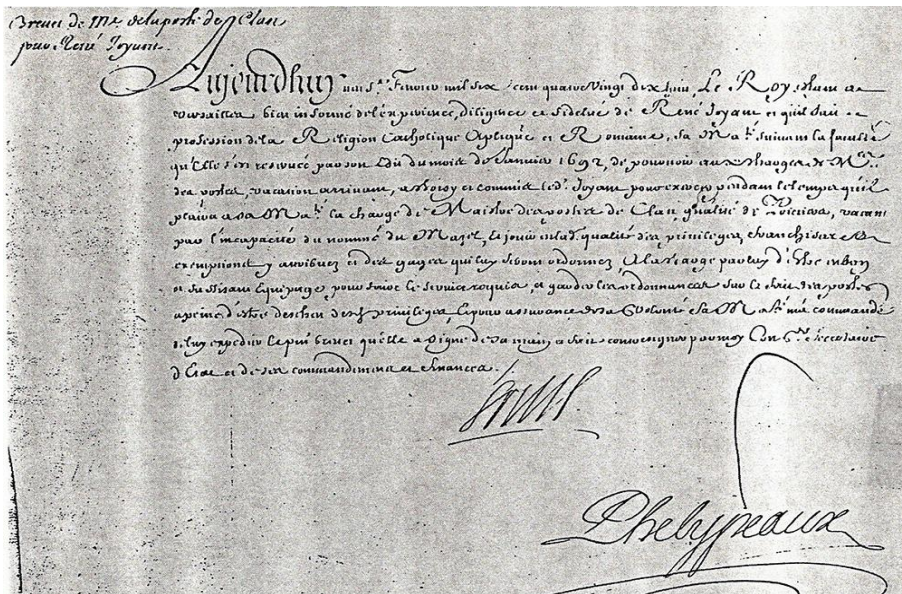 Brevet de Me. de la poste de Clan
pour René Joyant.
Aujourdhuy Fevrier mil six cent quatre vingt dix huit, Le Roy estant a
Versailles bien informé de l'experience, diligence et fidelité de René Joyant et qu'il fait
profession de la Religion Catholique Aplique et Romaine, Sa Maté. suivant la faculté
qu'Elle s'en reservée par son Edit du mois de Janvier 1692, de pourvoir aux charges de Mes.
des postes, vacation arrivant, a choisy et commis led. Joyant pour exercer pendant le temps qu'il
plaira a sa Maté. la charge de Maistre des postes de Clan g'ralité de Poictiers, vacant
par l'incapacité du nommé du Mazet, Et jouir en lad. qualité des privileges, franchises et
exemptions y atribuez et des gages qui luy seront ordonnez, A la charge par luy d'estre en bon
et suffisant Equipage, pour faire le service requis, et garder les ordonnances sur le fait des postes
a peine d'estre descheu desd. privileges, Et pour assurance de sa Volonté Sa Maté. m'a commandé
luy expedier le pnt brevet qu'elle a signé de sa main, et fait contresigner par moy Conr. Secretaire
d'Estat et de ses commandemens et finances.
Louis
Phelypeaux